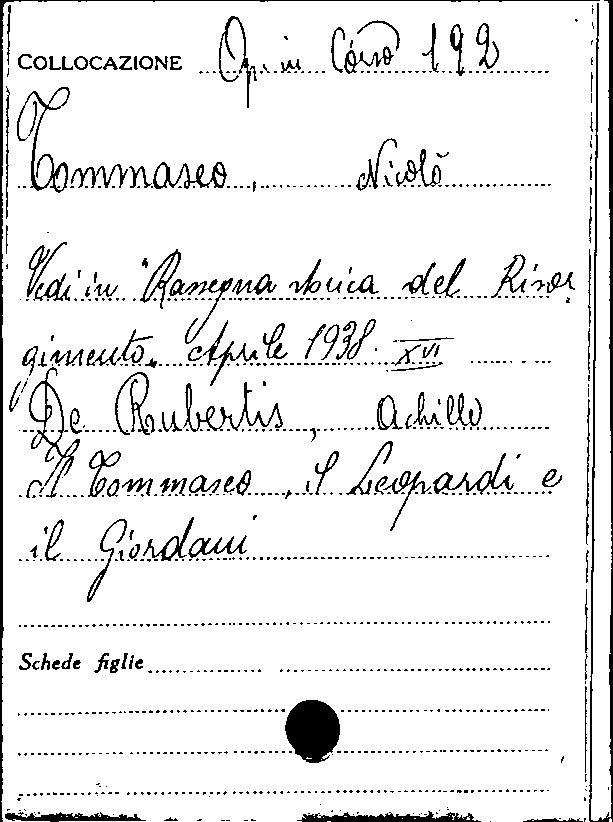 COLLOCAZIONE Op. in Corso 192
Tommaseo, Nicolò
Vedi in "Rassegna storica del Risor
gimento. Aprile 1938. XVI
De Rubertis, Achille
Il Tommaseo, il Leopardi e
il Giordani
Schede figlie